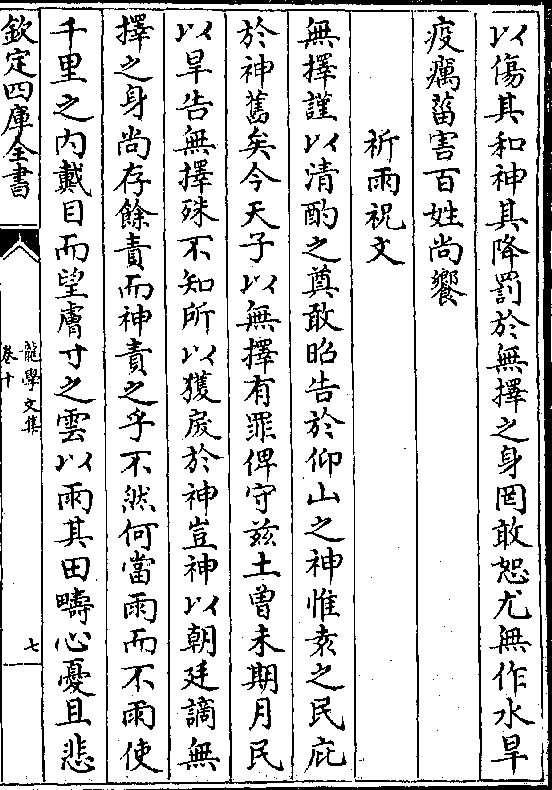 以傷其和神其降罰於無擇之身罔敢恕尤無作水旱
疫癘菑害百姓尚饗
祈雨祝文
無擇謹以清酌之奠敢昭告於仰山之神惟袁之民庇
於神舊矣今天子以無擇有罪俾守兹土曾未期月民
以旱告無擇殊不知所以獲戾於神豈神以朝廷謫無
擇之身尚存餘責而神責之乎不然何當雨而不雨使
千里之内戴目而望膚寸之雲以雨其田疇心憂且悲
欽定四庫全書
龍學文集
卷十
七